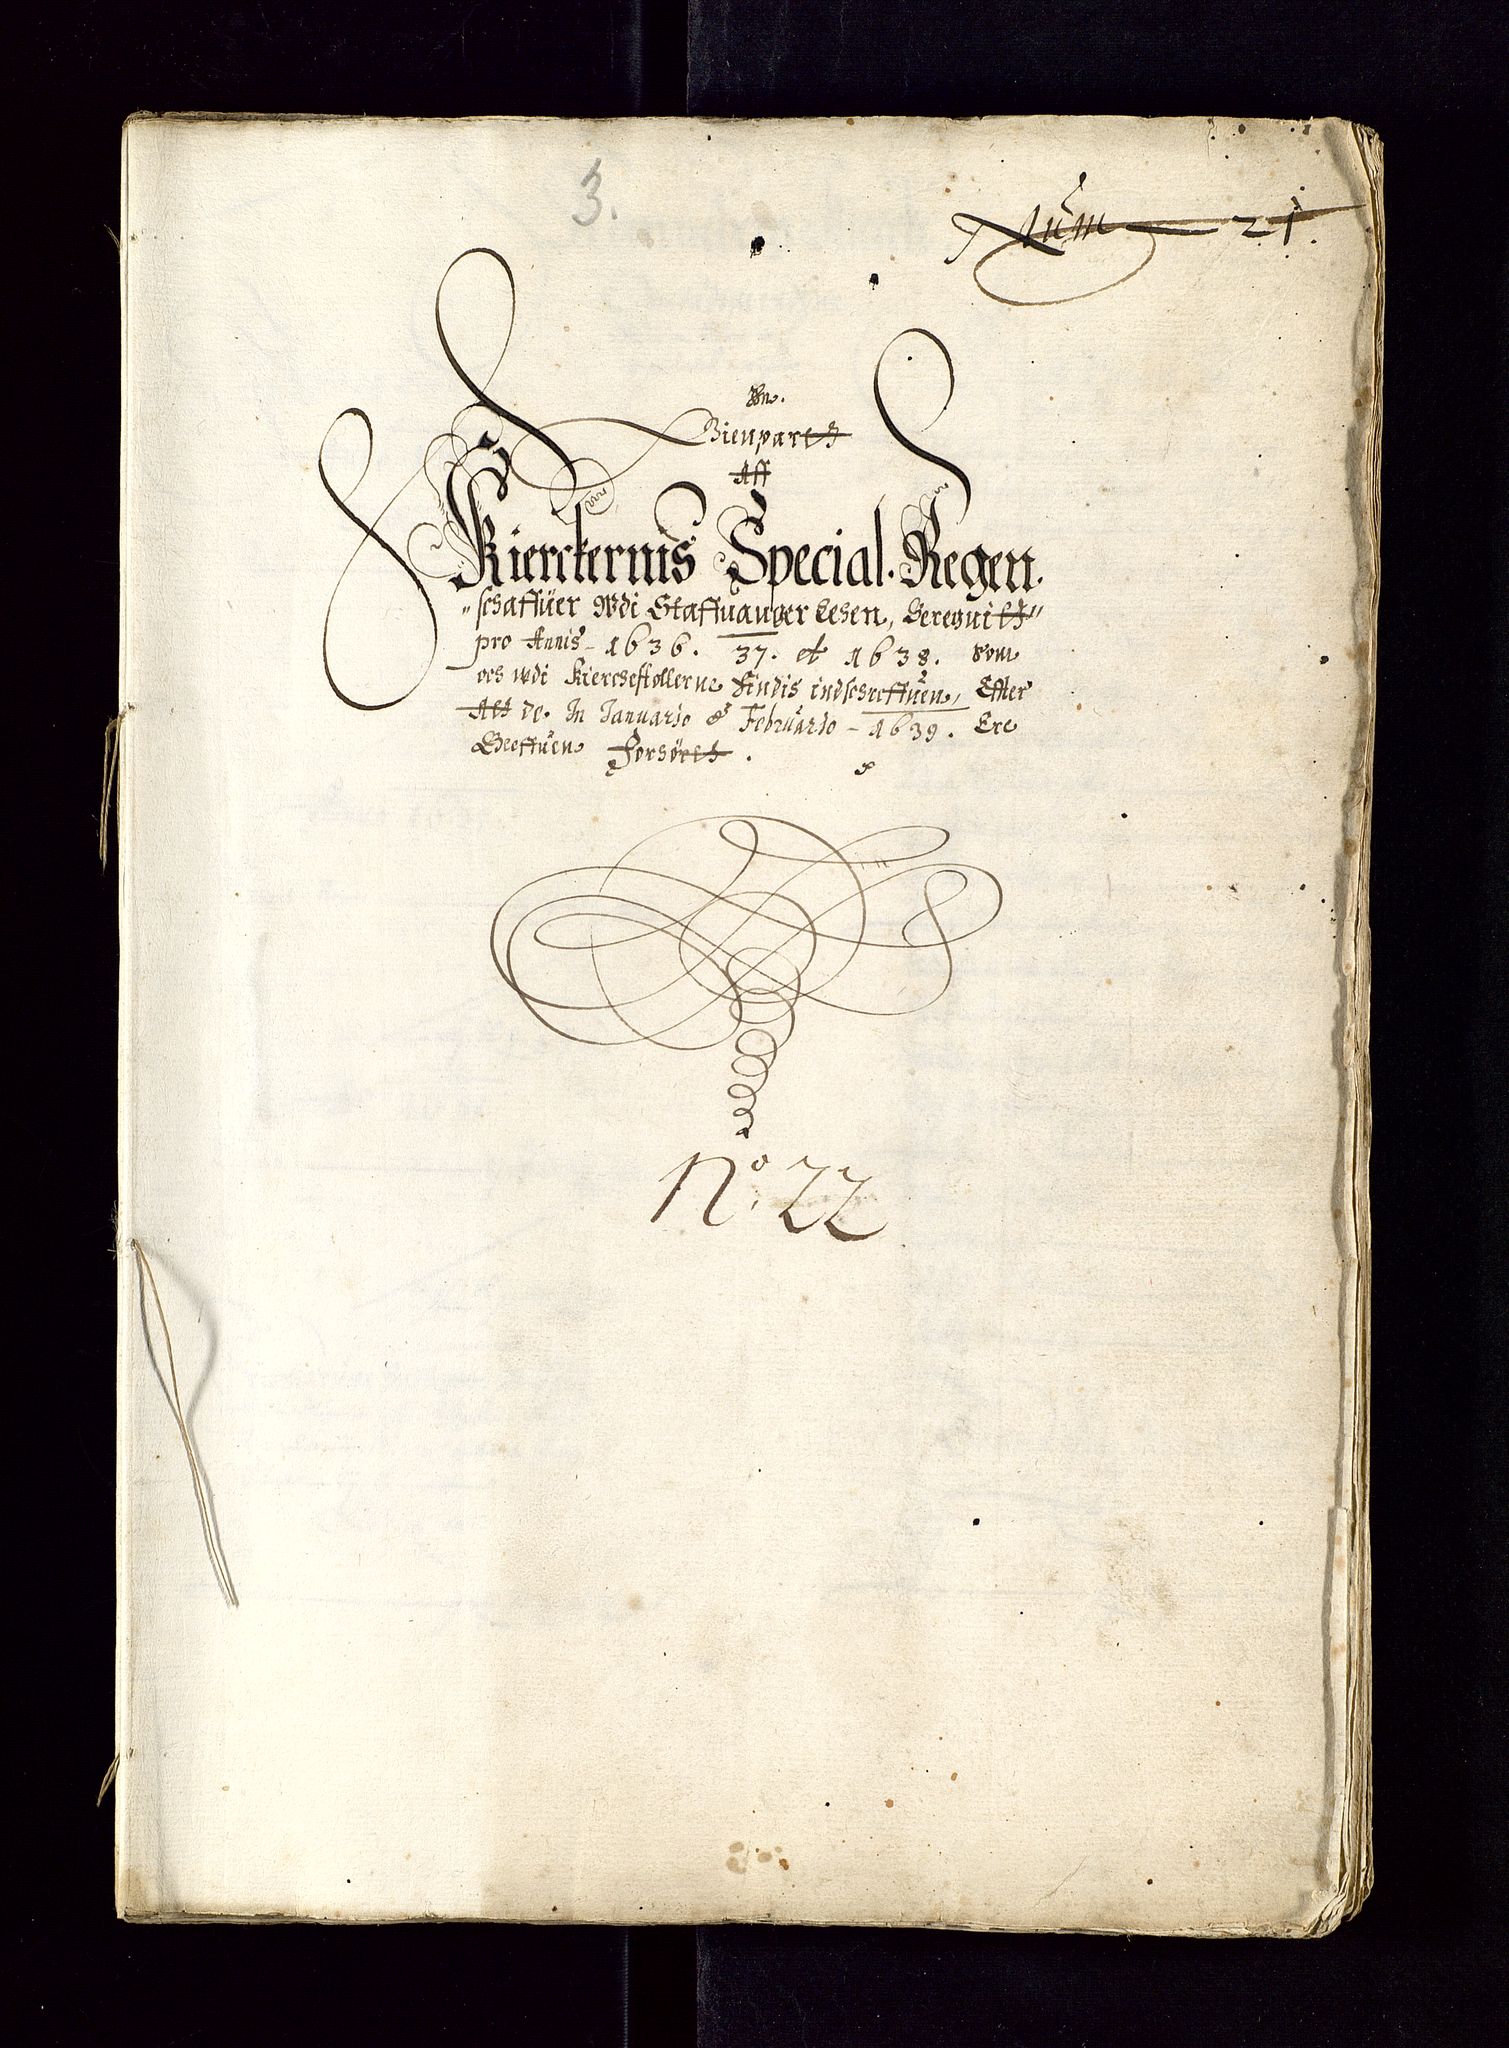 3.
Num 21.
En.
Gienpartt
Aff
Kierckernis Special. Regen.
"schaffuer Wdi Staffuanger Lehen, Beregnitt"
pro Annis - 1636. 37. et 1638. Som
och wdi Kierchestollerne findis indschreffuen, Effter
Att de. In Januario & Februario - 1639. Ere
Bleffuen Forhörtt.
N.º 22